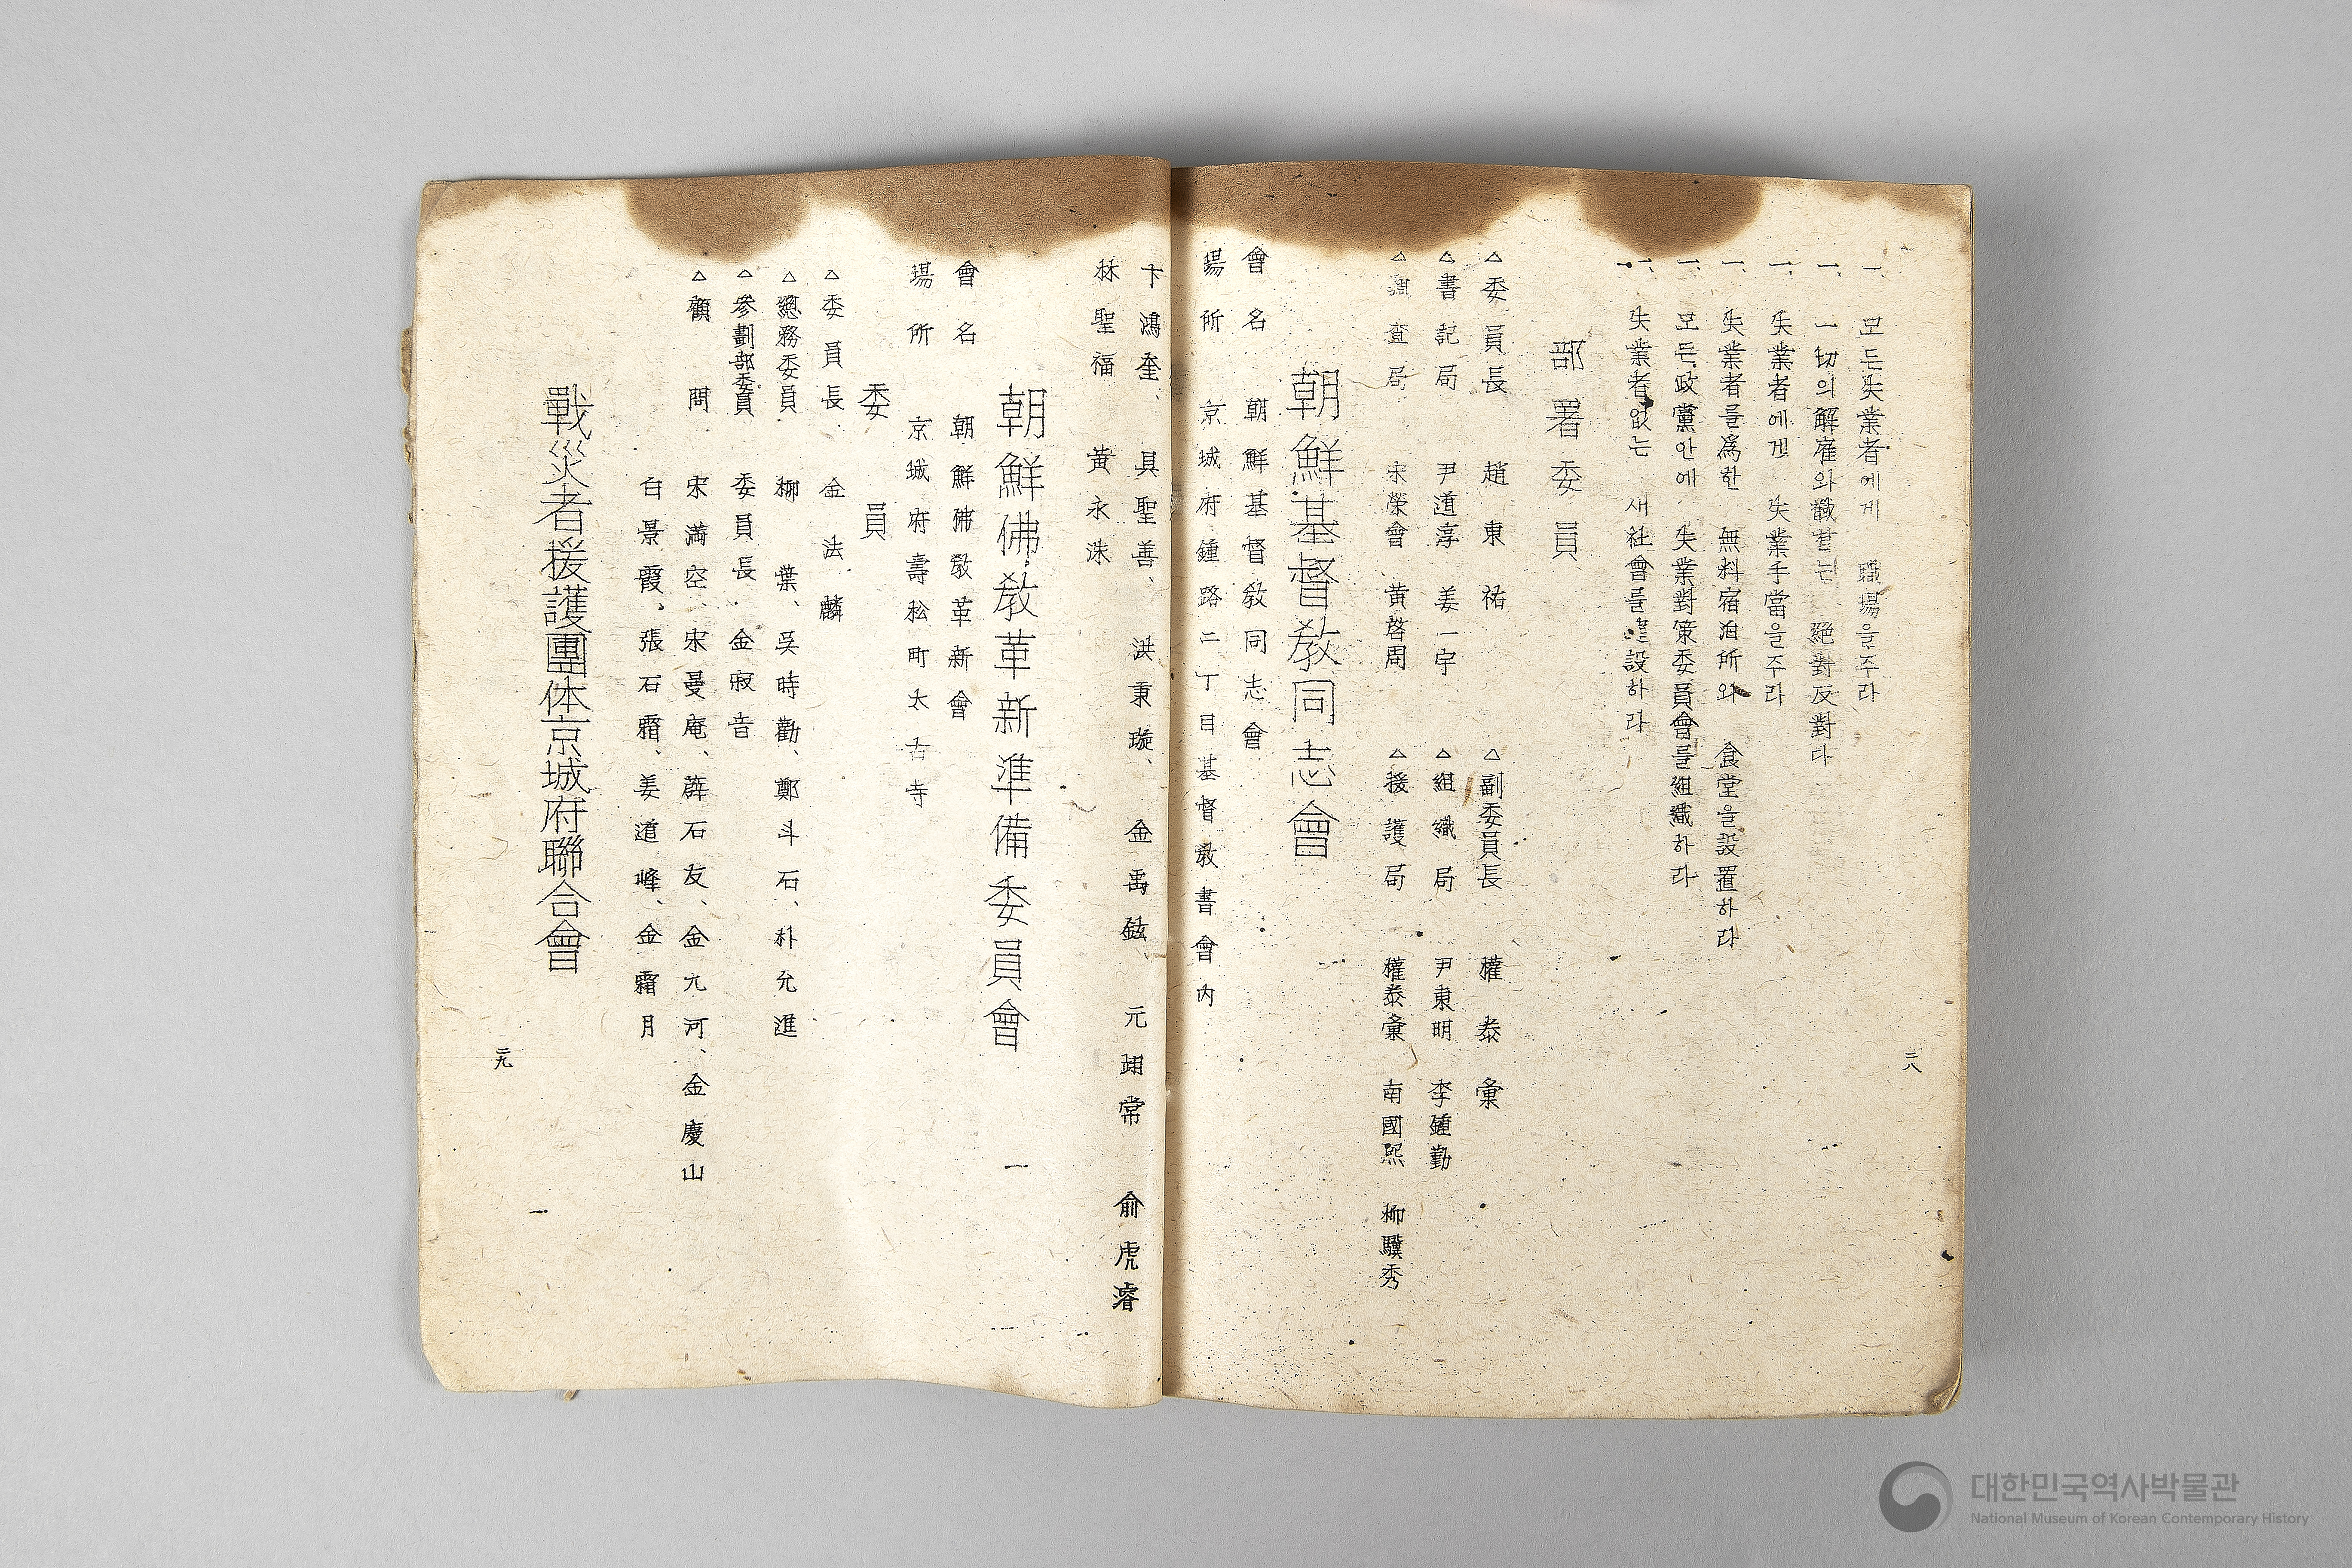 一、모든失業者에게 職場을주라
一、一切의解雇와 絶對反對다
一、失業者에게 失業手當을주라
一、失業者를爲한 無料宿泊所와 食堂을設置하라
一、모든政黨안에 失業對策委員會를組織하라
一、失業者없는 새社會를建設하라
部署委員
△委員長 趙東祐 △副委員長 權泰彙
△書記局 尹道淳 姜一宇 △組織局 尹東明 李鍾勤
△調査局 宋榮會 黃啓周 △援護局 權泰彙 南國熙 柳驥秀
朝鮮基督敎同志會
會名 朝鮮基督敎同志會
場所 京城府鍾路二丁目基督敎書會內
三八
卞鴻奎、具聖善、洪秉璇、金禹鉉、元翊常 俞虎濬
林聖福 黃永洙
朝鮮佛敎革新準備委員會
會名 朝鮮佛敎革新會
場所 京城府壽松町太古寺
委員
△委員長 金法麟
△總務委員 柳葉、吳時勸、鄭斗石、朴允進
△參劃部委員 委員長 金寂音
△顧問 宋滿空、宋曼庵、薛石友、金九河、金慶山
白景霞、張石霜、姜道峰、金霜月
戰災者援護團体京城府聯合會
三九
대한민국역사박물관
National Museum of Korean Contemporary History